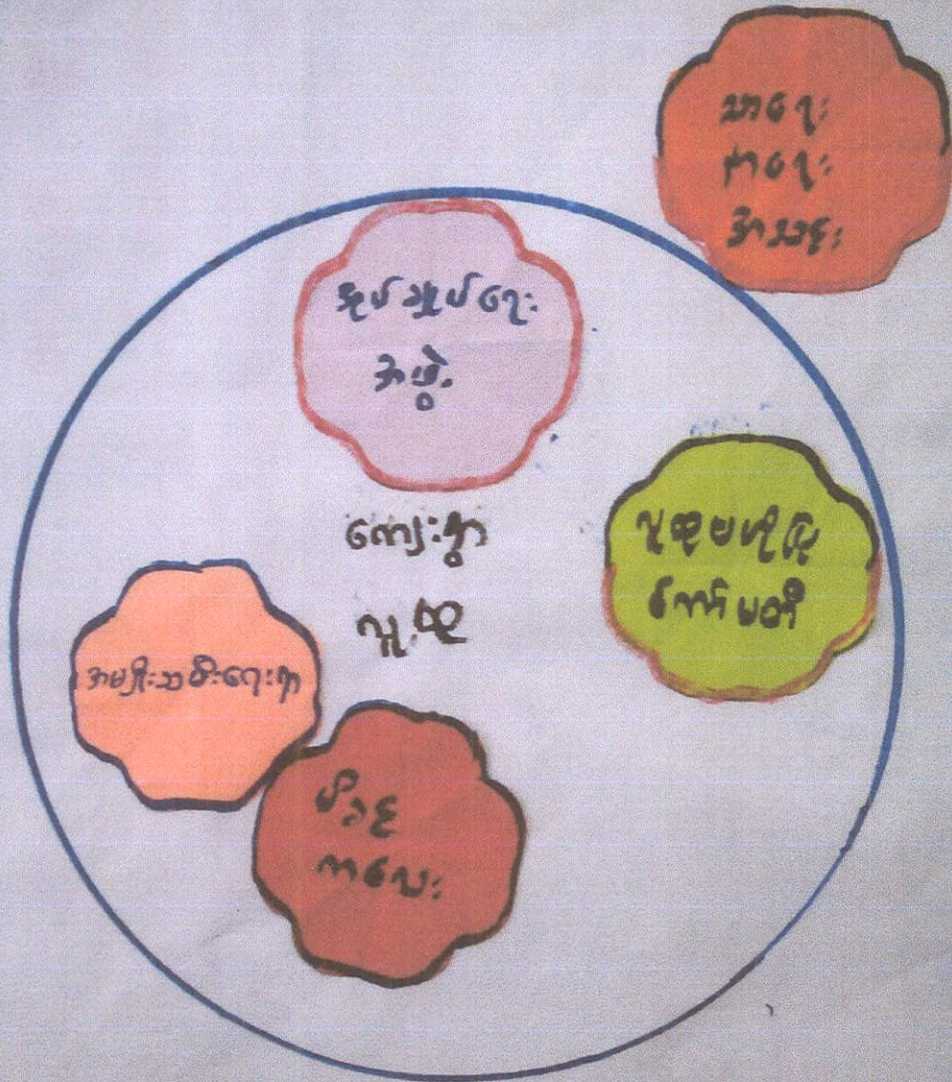 သာရေး
နာရေး
အသင်း
အုပ်ချုပ်ရေး
အဖွဲ့
ကျေးရွာ
လူထု
လူထုဗဟိုပြု
ကော်မတီ
အမျိုးသမီးရေးရာ
မိခင်
ကလေး